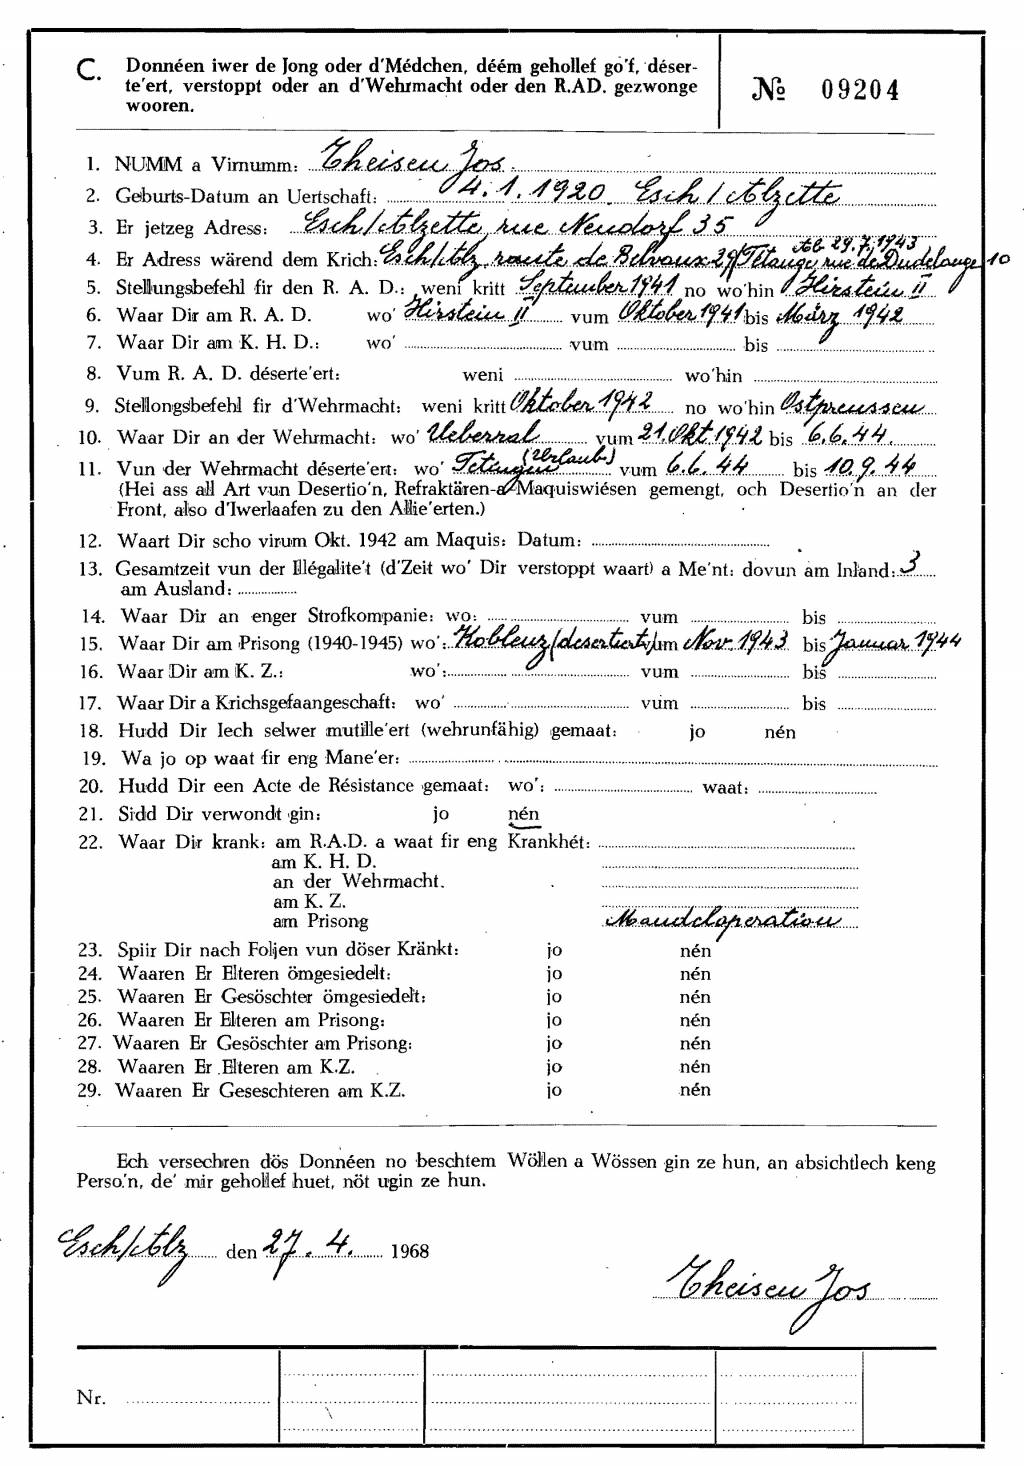 C. Donnéen iwer de Jong oder d'Médchen, déém gehollef go'f, déser-
te'ert, verstoppt oder an d'Wehrmacht oder den R.AD. gezwonge
wooren.
№ 09204
1. NUMM a Virnumm: Theisen Jos.
2. Geburts-Datum an Uertschaft: 4.1.1920. Esch/Alzette
3. Er jetzeg Adress: Esch/Alzette, rue Neudorf 35
Ab 29.7.1943
4. Er Adress wärend dem Krich: Esch/Alz, route de Belvaux 29/Tétange, rue de Dudelange 10
5. Stellungsbefehl fir den R. A. D.: weni kritt September 1941 no wo'hin Hirstein II
6. Waar Dir am R. A. D. wo' Hirstein II vum Oktober 1941 bis März 1942
7. Waar Dir am K. H. D.: wo' vum bis
8. Vum R. A. D. déserte'ert: weni wo'hin
9. Stellongsbefehl fir d'Wehrmacht: weni kritt Oktober 1942 no wo'hin Ostpreussen
10. Waar Dir an der Wehrmacht: wo' Ueberral vum 21. Okt. 1942 bis 6.6.44.
11. Vun der Wehrmacht déserte'ert: wo' Tetingen (Urlaub) vum 6.6.44 bis 10.9.44
(Hei ass all Art vun Desertio'n, Refraktären-a Maquiswiésen gemengt, och Desertio'n an der
Front, also d'Iwerlaafen zu den Allie'erten.)
12. Waart Dir scho virum Okt. 1942 am Maquis: Datum:
13. Gesamtzeit vun der Illégalite't (d'Zeit wo' Dir verstoppt waart) a Me'nt: dovun am Inland: 3
am Ausland:
14. Waar Dir an enger Strofkompanie: wo: vum bis
15. Waar Dir am Prisong (1940-1945) wo': Koblenz (desertiert) vum Nov. 1943 bis Januar 1944
16. Waar Dir am K. Z.: wo': vum bis
17. Waar Dir a Krichsgefaangeschaft: wo' vum bis
18. Hudd Dir Iech selwer mutille'ert (wehrunfähig) gemaat: jo nén
19. Wa jo op waat fir eng Mane'er:
20. Hudd Dir een Acte de Résistance gemaat: wo': waat:
21. Sidd Dir verwondt gin: jo nén
22. Waar Dir krank: am R.A.D. a waat fir eng Krankhét:
am K. H. D.
an der Wehrmacht.
am K. Z.
am Prisong Mandeloperation
23. Spiir Dir nach Foljen vun döser Kränkt: jo nén
24. Waaren Er Elteren ömgesiedelt: jo nén
25. Waaren Er Gesöschter ömgesiedelt: jo nén
26. Waaren Er Elteren am Prisong: jo nén
27. Waaren Er Gesöschter am Prisong: jo nén
28. Waaren Er Elteren am K.Z. jo nén
29. Waaren Er Geseschteren am K.Z. jo nén
Ech versechren dös Donnéen no beschtem Wöllen a Wössen gin ze hun, an absichtlech keng
Perso'n, de' mir gehollef huet, nöt ugin ze hun.
Esch/Alz den 27. 4. 1968
Theisen Jos
Nr.